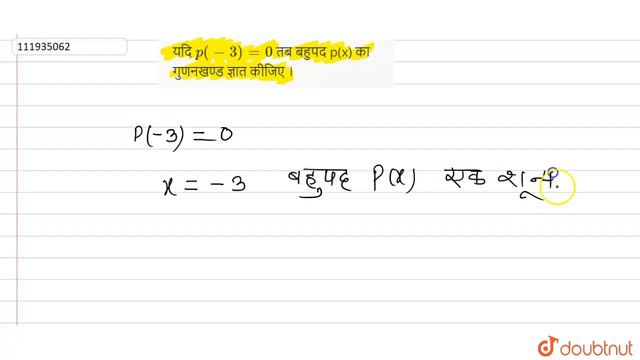 111935062
यदि p(-3) = 0 तब बहुपद p(x) का
गुणनखण्ड ज्ञात कीजिए ।
P(-3) = 0
x = -3 बहुपद P(x) एक
doubtnut